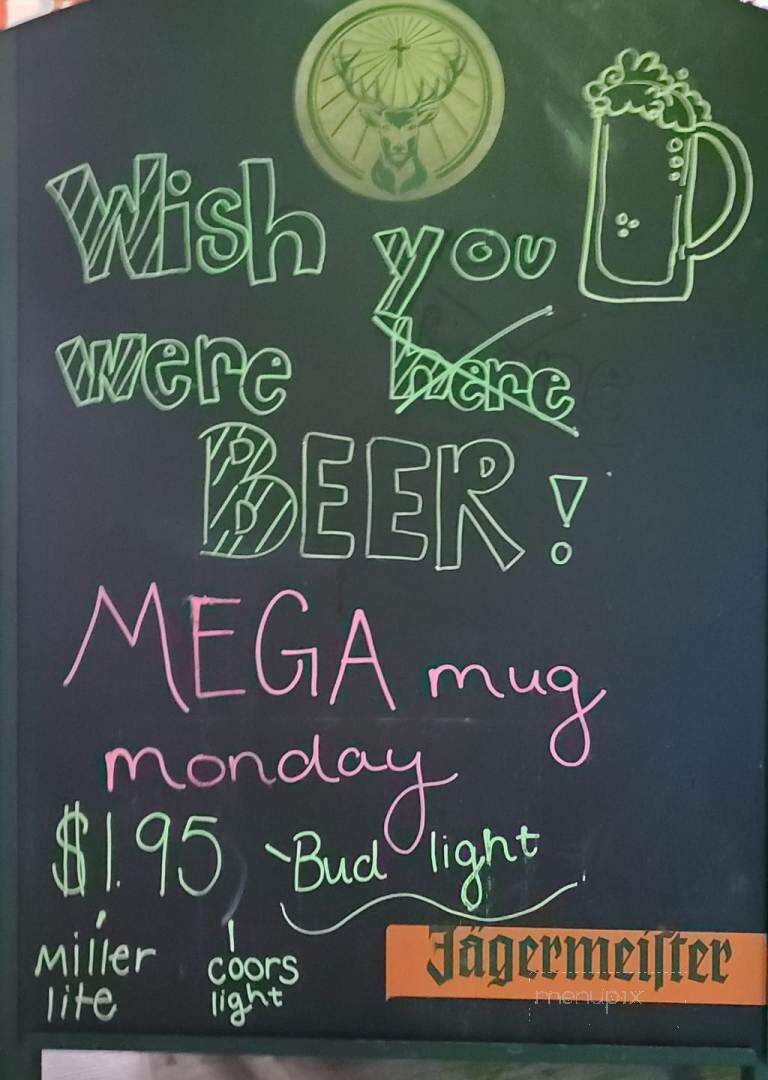 Wish you
were here
BEER!
MEGA mug
monday
$1.95 Bud light
Miller
lite
coors
light
Jägermeister
menupix